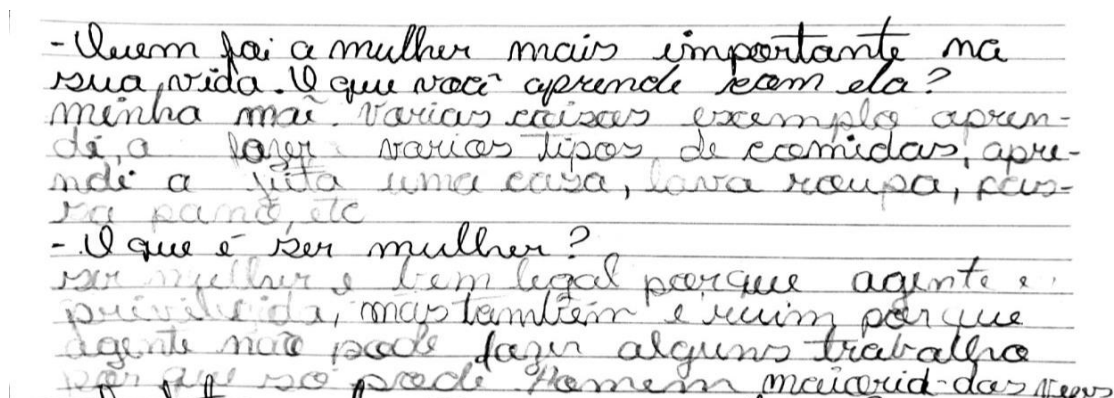 - Quem foi a mulher mais importante na
sua vida. O que você aprende com ela?
minha mãe. Varias coisas exemplo apren-
di, a fazer varios tipos de comidas, apre-
ndi a uma casa, lava roupa, pas-
sa pano, etc
- O que é ser mulher?
ser mulher e bem legal porque agente e
, mas também é ruim porque
agente não pode fazer alguns trabalho
por que só pode Homem, maiorid-das vezes